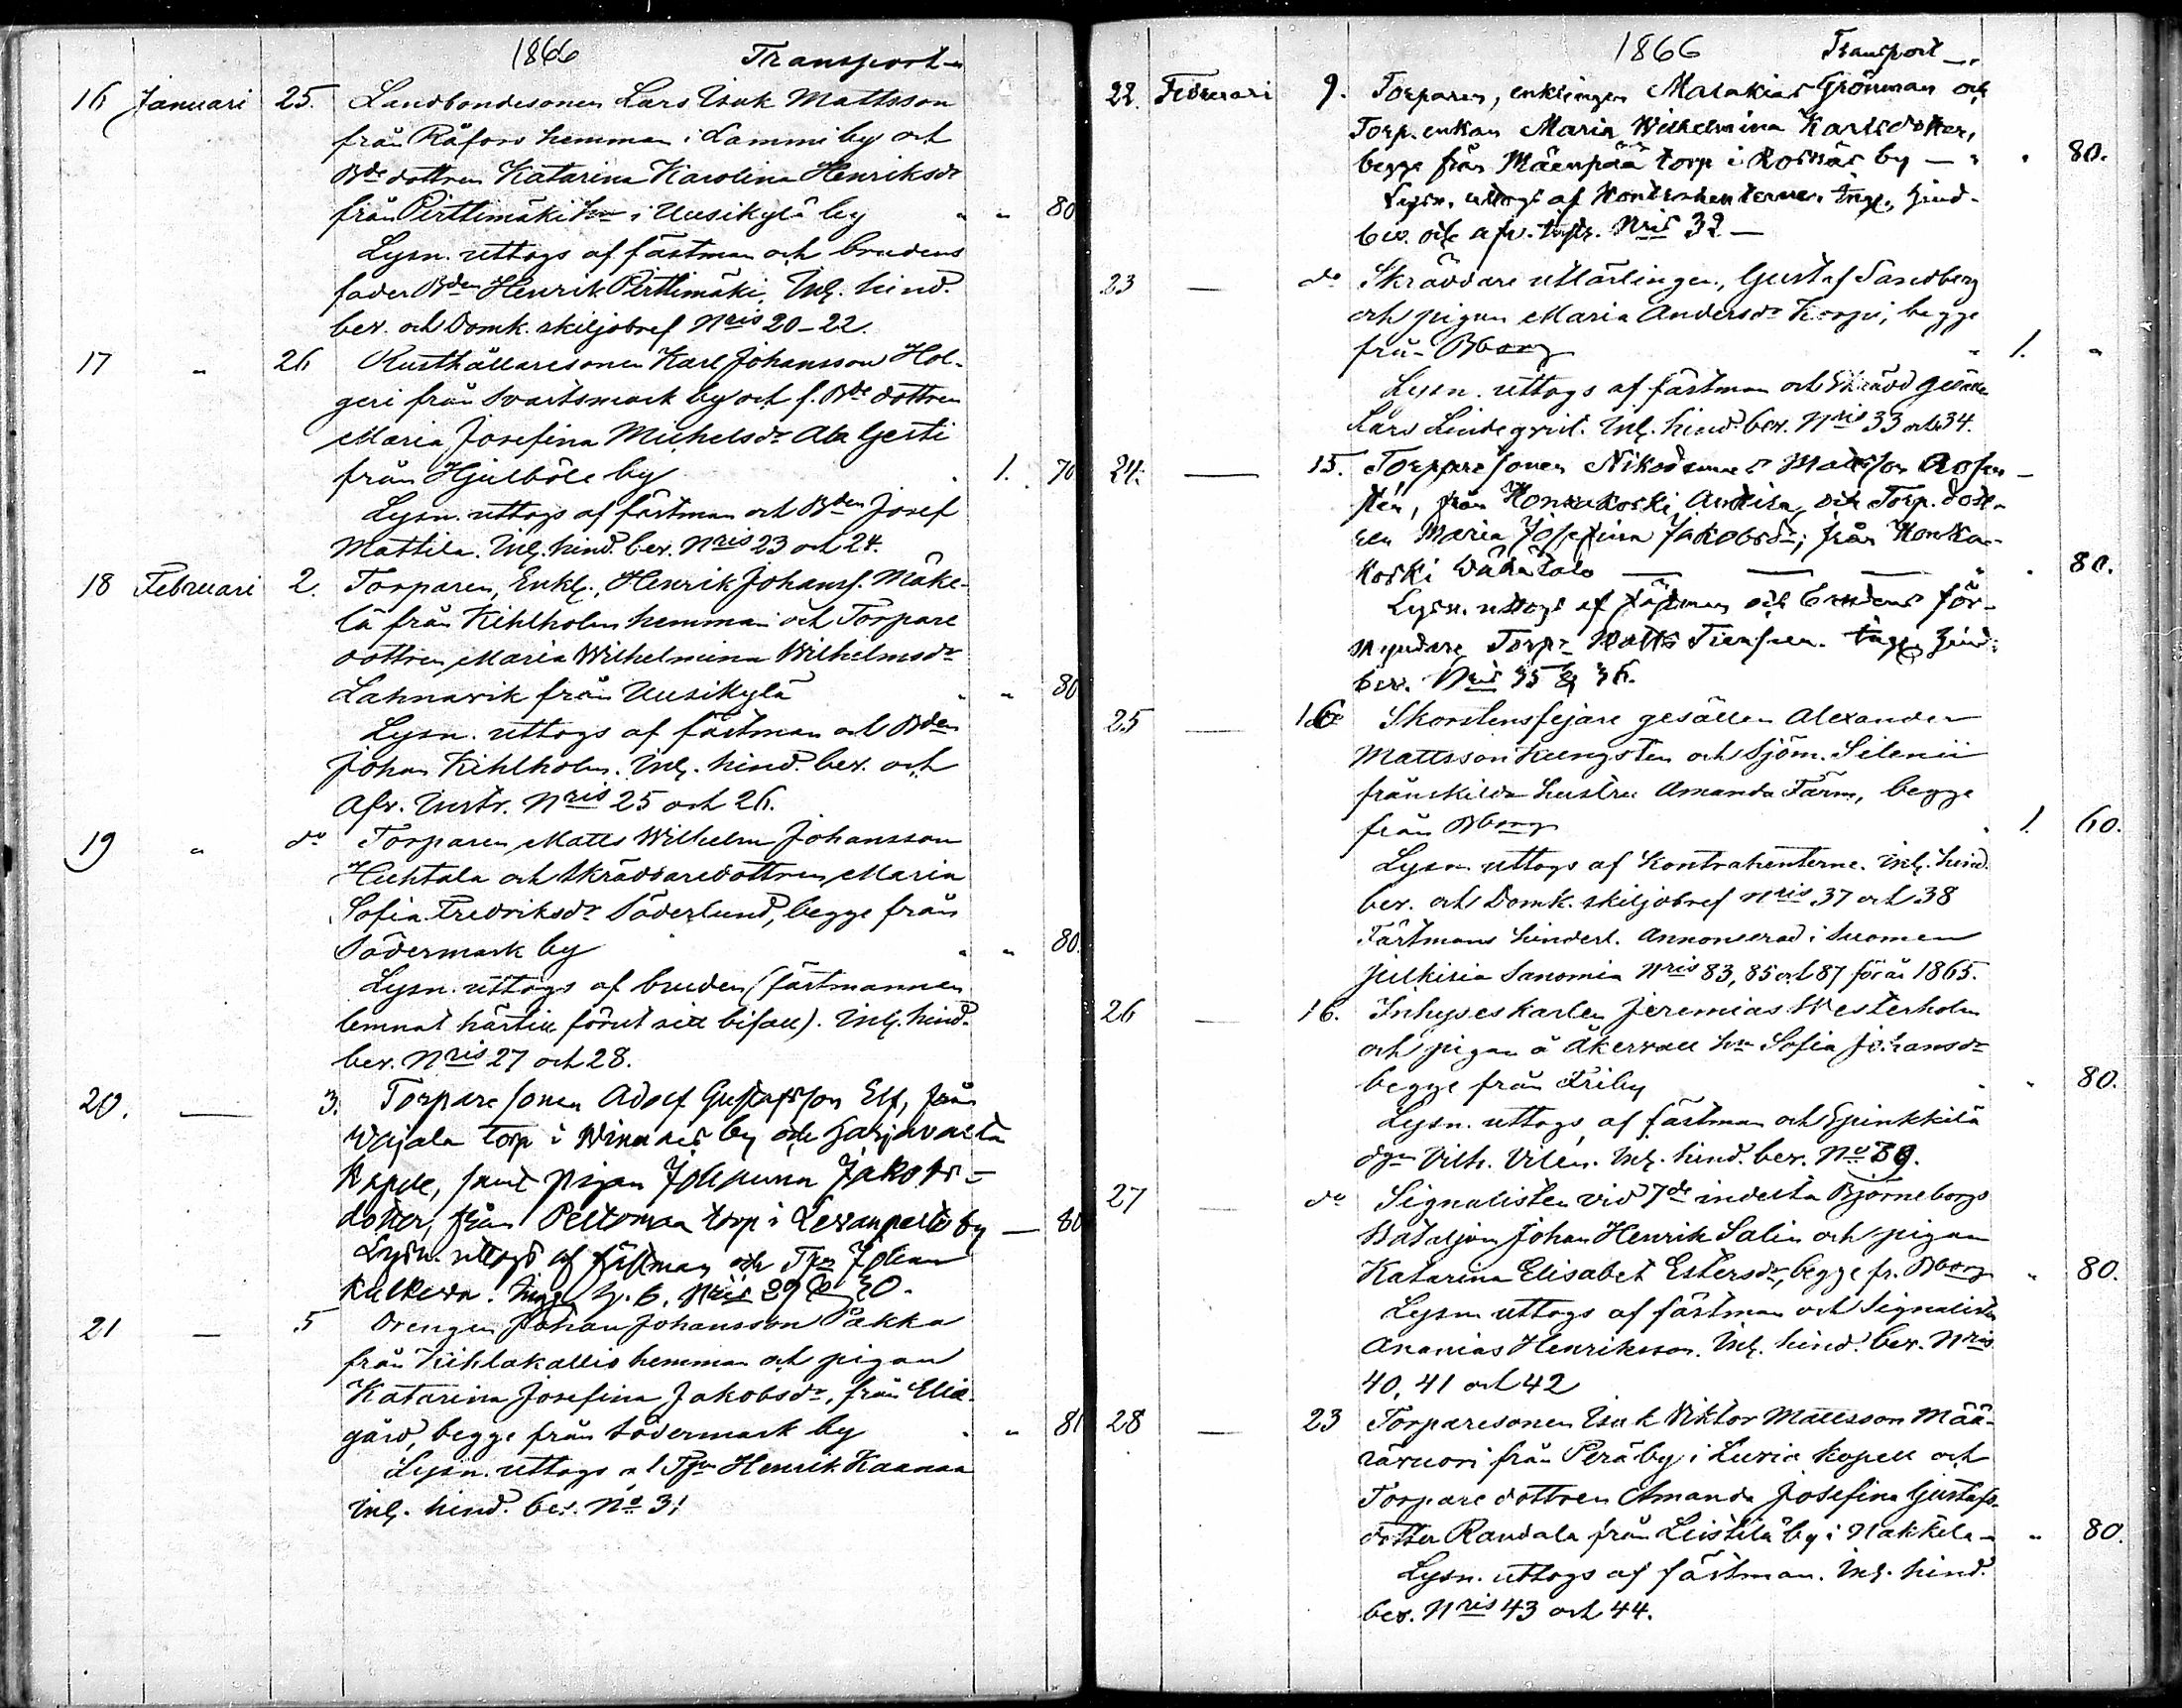 1866 Transport
16 Januari 25. Landbondesonen Lars Isak Mattsson
från Råfors hemman i Lammi by och
Bde dottren Katarina Karolina Henriksdr
från Pirttimäki hn i Uusikylä by " " 80
Lysn. uttogs af fästman och brudens
fader Bden Henrik Pirttimäki. Inl. hind.
bev. och Domk. skiljobref Nris 20-22.
17 " 26 Rusthållaresonen Karl Johansson Hol-
geri från Svartsmark by och f. Bde dottren
Maria Josefina Michelsdr Ala Gesti
från Hjulböle by " 1. 70
Lysn. uttogs af fästman och Bden Josef
Mattila. Inl. hind. bev. Nris 23 och 24.
18 Februari 2. Torparen, Enkl., Henrik Johanss. Mäke-
lä från Kihlholm hemman och Torpare
dottren Maria Wilhelmina Wilhelmsdr
Lahnavik från Uusikylä " " 80
Lysn. uttogs af fästman och Bden
Johan Kihlholm. Inl. hind. bev. och
Afv. Instr. Nris 25 och 26.
19 " do Torparen Matts Wilhelm Johansson
Huhtala och Skräddaredottren Maria
Sofia Fredriksdr Söderlund, begge från
Södermark by " " 80.
Lysn. uttogs af bruden (fästmannen
lemnat härtill förut sitt bifall). Inl. hind.
bev. Nris 27 och 28.
20. — 3. Torpare sonen Adolf Gustafsson Elf, från
torp i by och Harjavalta
Kapell, samt pigan Johanna Jakobs-
dotter, från Peltomaa torp i Levanpelto by — 80
Lysn. uttogs af fästman och Johan
h. b. Nris 29 & 30.
21 — 5 Drengen Johan Johansson Päkka
från Kihlakallis hemman och pigan
Katarina Josefina Jakobsdr, från Elis-
gård, begge från Södermark by " " 80
Lysn. uttogs af Henrik Kaanaa
Inl. hind. bev. No 31
1866 Transport
22. Februari 9. Torparen, enklingen Malakias Grönman och
Torp. enkan Maria Wilhelmina Karlsdotter,
begge från Mäenpää torp i Rosnäs by — " " 80.
Lysn. uttogs af Kontrahenterne. Ingl. hind-
bev. och afv. Instr. Nris 32 —
23 — do Skräddare utlärlingen, Gustaf Sandberg
och pigan Maria Andersdr Korpi, begge
från Bborg " 1. "
Lysn. uttogs af fästman och Skrädd gesäll
Lars Lindeqvist. Inl. hind. bev. Nris 33 och 34.
24. — 15. Torpare sonen Nikodemus Mattsson Rosen-
sten, från Antila, och Torp. dott-
ren Maria Josefina Jakobsdr, från Honka-
koski Wähätalo — — — " " 80.
Lysn. uttogs af fästman och brudens för-
myndare Torpr Matts hind.
bev. Nris 35 & 36.
25 — 16 Skorstensfejare gesällen Alexander
Mattsson Kungsten och Sjöm. Silenii
frånskilda hustru Amanda Färm, begge
från Bborg " 1. 60.
Lysn. uttogs af Kontrahenterne. Inl. hind.
bev. och Domk. skiljobref Nris 37 och 38
Fästmans hindersl. Annonserad i Suomen
Julkisia Sanomia Nris 83, 85 och 87 för år 1865.
26 — 16. Inhyseskarlen Jeremias Westerholm
och pigan å Åkervall hn Sofia Johansdr
begge från Friby " " 80.
Lysn. uttogs af fästman och
Vilh. Vilén. Inl. hind. bev. No 39.
27 — do Signalisten vid 7de indelta Björneborgs
Bataljon Johan Henrik Salin och pigan
Katarina Elisabet Estersdr, begge fr. Bborg " 80.
Lysn. uttogs af fästman och Signalisten
Ananias Henriksson. Inl. hind. bev. Nris
40, 41 och 42
28 — 23 Torparesonen Isak Viktor Mattsson Mää-
rävuori från Peräby i Luvia kapell och
Torpare dottren Amanda Josefina Gustafs-
dotter Randala från Leistilä by i Nakkila " " 80.
Lysn. uttogs af fästman. Inl. hind.
bev. Nris 43 och 44.